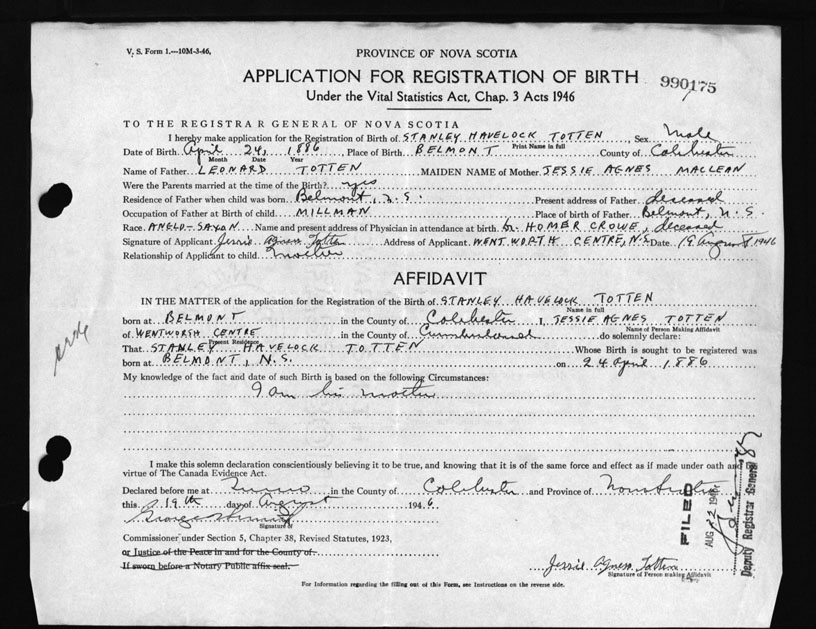 V. S. Form 1.—10M-3-46.
PROVINCE OF NOVA SCOTIA
APPLICATION FOR REGISTRATION OF BIRTH 990175
Under the Vital Statistics Act, Chap. 3 Acts 1946
TO THE REGISTRAR GENERAL OF NOVA SCOTIA
I hereby make application for the Registration of Birth of STANLEY HAVELOCK TOTTEN, Sex Male
Print Name in full
Date of Birth April 24, 1886, Place of Birth BELMONT County of Colchester
Month Date Year
Name of Father LEONARD TOTTEN MAIDEN NAME of Mother JESSIE AGNES MACLEAN
Were the Parents married at the time of the Birth? yes
Residence of Father when child was born Belmont, N.S. Present address of Father deceased
Occupation of Father at Birth of child MILLMAN Place of birth of Father Belmont, N.S.
Race ANGLO-SAXON Name and present address of Physician in attendance at birth Dr. HOMER CROWE, deceased
Signature of Applicant Jessie Agness Totten Address of Applicant WENTWORTH CENTRE, N.S. Date 19 August 1946
Relationship of Applicant to child mother
AFFIDAVIT
IN THE MATTER of the application for the Registration of the Birth of STANLEY HAVELOCK TOTTEN
Name in full
born at BELMONT in the County of Colchester I, JESSIE AGNES TOTTEN
Name of Person Making Affidavit
of WENTWORTH CENTRE in the County of Cumberland do solemnly declare:
Present Residence
That STANLEY HAVELOCK TOTTEN Whose Birth is sought to be registered was
born at BELMONT, N.S. on 24 April 1886
My knowledge of the fact and date of such Birth is based on the following Circumstances:
I am his mother
I make this solemn declaration conscientiously believing it to be true, and knowing that it is of the same force and effect as if made under oath and by
virtue of The Canada Evidence Act.
Declared before me at Truro in the County of Colchester and Province of Nova Scotia
this 19th day of August 1946
Signature of
Commissioner under Section 5, Chapter 38, Revised Statutes, 1923,
or Justice of the Peace in and for the County of
If sworn before a Notary Public affix seal.
Jessie Agness Totten
Signature of Person making Affidavit
For Information regarding the filling out of this Form, see Instructions on the reverse side.
FILED
AUG 22 1946
Deputy Registrar General